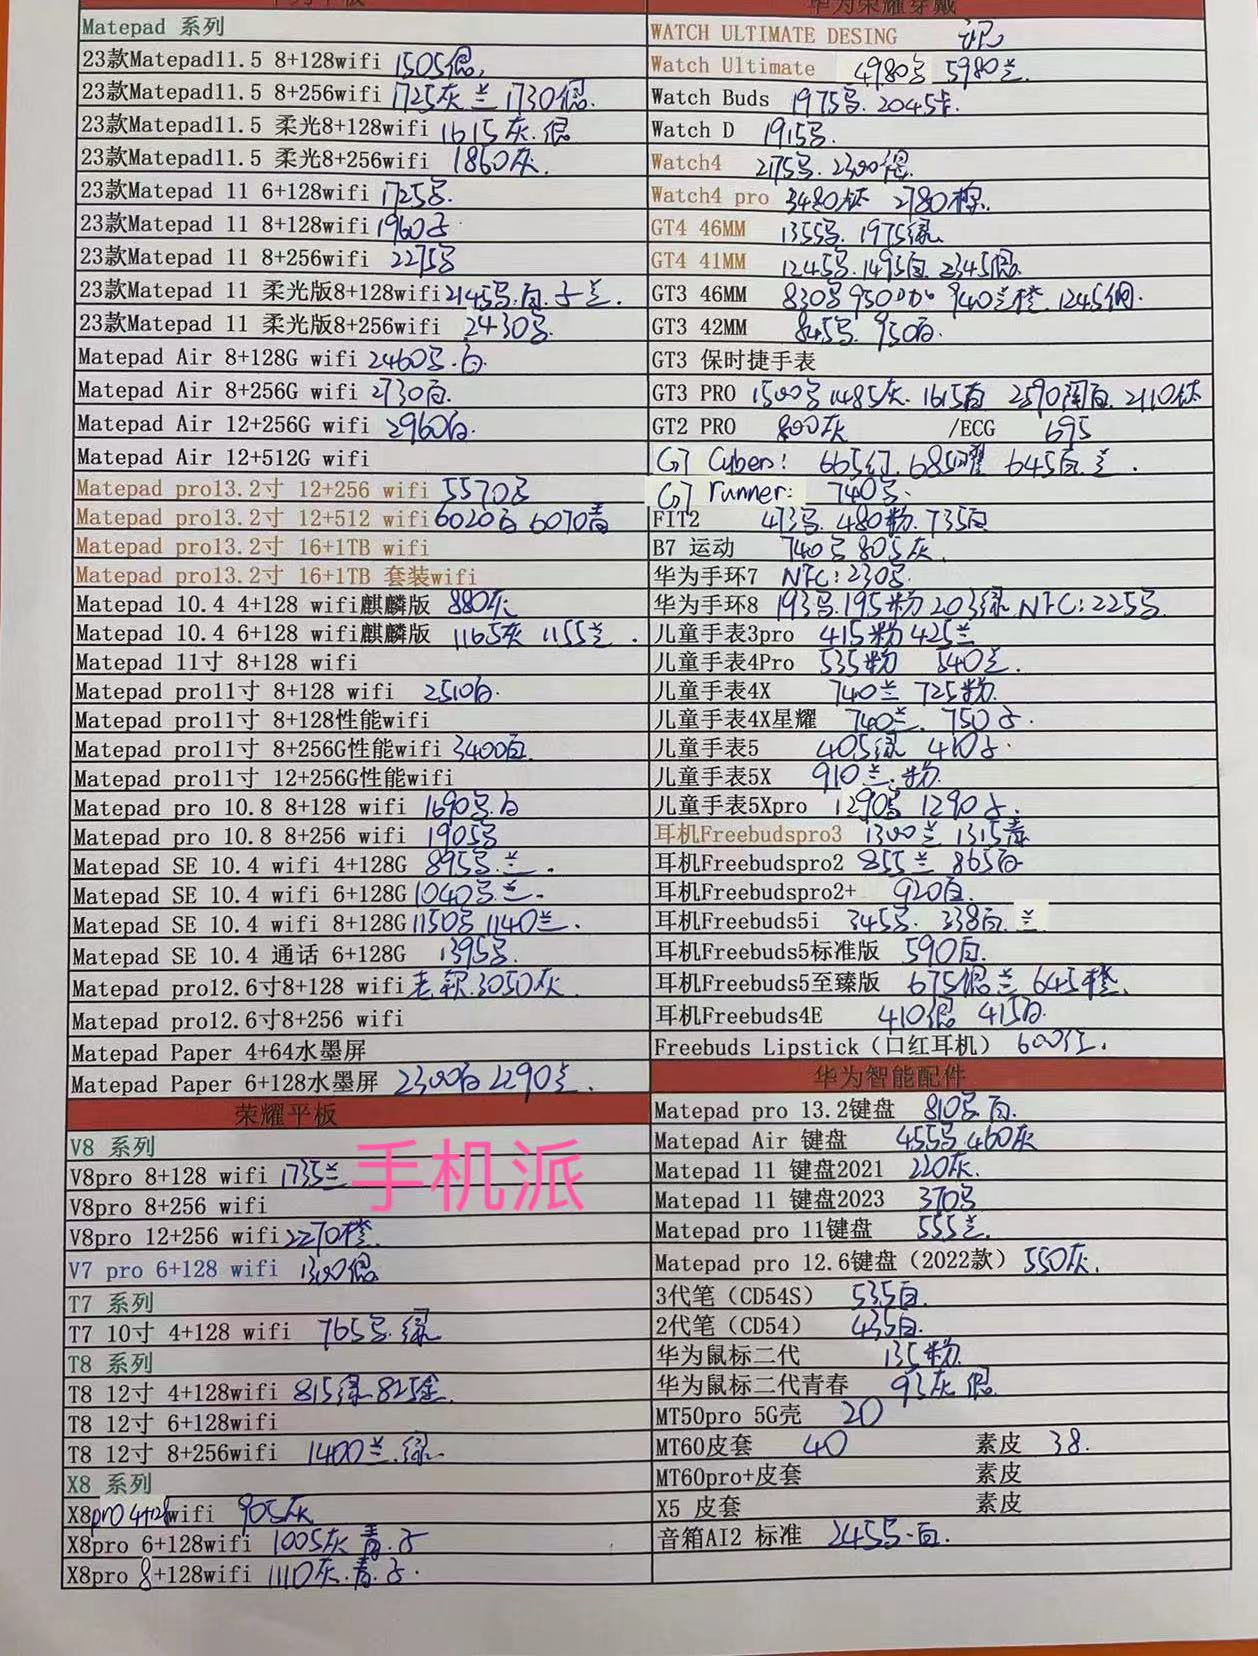 Matepad 系列
23款Matepad11.5 8+128wifi 1505银.
23款Matepad11.5 8+256wifi 1725灰兰 1730银.
23款Matepad11.5 柔光8+128wifi 1615灰.银
23款Matepad11.5 柔光8+256wifi 1860灰.
23款Matepad 11 6+128wifi 1725
23款Matepad 11 8+128wifi 1960
23款Matepad 11 8+256wifi 2275
23款Matepad 11 柔光版8+128wifi 2145
23款Matepad 11 柔光版8+256wifi 2430
Matepad Air 8+128G wifi 2460 白.
Matepad Air 8+256G wifi 2730白.
Matepad Air 12+256G wifi 2960白.
Matepad Air 12+512G wifi
Matepad pro13.2寸 12+256 wifi 5570
Matepad pro13.2寸 12+512 wifi 6020白 6070青
Matepad pro13.2寸 16+1TB wifi
Matepad pro13.2寸 16+1TB 套装wifi
Matepad 10.4 4+128 wifi麒麟版 880灰
Matepad 10.4 6+128 wifi麒麟版 1165灰 1155兰.
Matepad 11寸 8+128 wifi
Matepad pro11寸 8+128 wifi 2510白.
Matepad pro11寸 8+128性能wifi
Matepad pro11寸 8+256G性能wifi 3400白.
Matepad pro11寸 12+256G性能wifi
Matepad pro 10.8 8+128 wifi 1690 白
Matepad pro 10.8 8+256 wifi 1905
Matepad SE 10.4 wifi 4+128G 895 兰.
Matepad SE 10.4 wifi 6+128G 1040 兰.
Matepad SE 10.4 wifi 8+128G 1150 1140兰.
Matepad SE 10.4 通话 6+128G 1395
Matepad pro12.6寸8+128 wifi 老款.3050灰.
Matepad pro12.6寸8+256 wifi
Matepad Paper 4+64水墨屏
Matepad Paper 6+128水墨屏 2300白 2290兰.
荣耀平板
V8 系列
V8pro 8+128 wifi 1735兰
手机派
V8pro 8+256 wifi
V8pro 12+256 wifi 2270橙.
V7 pro 6+128 wifi 1300银
T7 系列
T7 10寸 4+128 wifi 765 绿
T8 系列
T8 12寸 4+128wifi 815绿 825金.
T8 12寸 6+128wifi
T8 12寸 8+256wifi 1400兰.绿
X8 系列
X8pro 4+128wifi 905灰
X8pro 6+128wifi 1005灰 青.
X8pro 8+128wifi 1110灰.青.
华为荣耀穿戴
WATCH ULTIMATE DESING
Watch Ultimate 4980 5980兰.
Watch Buds 1975 2045卡.
Watch D 1915
Watch4 2175 2300棕.
Watch4 pro 3480钛 2780棕.
GT4 46MM 1355 1975绿.
GT4 41MM 1245 1495白 2345银
GT3 46MM 830 950 940兰橙 1245钢.
GT3 42MM 845 950白.
GT3 保时捷手表
GT3 PRO 1500 1485灰. 1615白 2590陶白 2110钛
GT2 PRO 800灰 /ECG 695
GT Cyber: 665红. 685曜 645白.兰.
GT runner: 740
FIT2 473 480粉.735白
B7 运动 740 805灰.
华为手环7 NFC:230
华为手环8 193 195粉 203绿 NFC:225
儿童手表3pro 415粉 425兰
儿童手表4Pro 535粉 540兰.
儿童手表4X 740兰 725粉.
儿童手表4X星耀 740兰. 750
儿童手表5 405绿 410
儿童手表5X 910兰.粉.
儿童手表5Xpro 1290 1290
耳机Freebudspro3 1300兰 1315青
耳机Freebudspro2 855兰 865白
耳机Freebudspro2+ 920白.
耳机Freebuds5i 345 338白.兰
耳机Freebuds5标准版 590白.
耳机Freebuds5至臻版 675银兰 645橙.
耳机Freebuds4E 410银 415白.
Freebuds Lipstick（口红耳机） 600红.
华为智能配件
Matepad pro 13.2键盘 810 白.
Matepad Air 键盘 455 460灰
Matepad 11 键盘2021 220灰.
Matepad 11 键盘2023 370
Matepad pro 11键盘 555兰.
Matepad pro 12.6键盘（2022款） 550灰.
3代笔（CD54S） 535白.
2代笔（CD54） 435白.
华为鼠标二代 135粉.
华为鼠标二代青春 93灰 银.
MT50pro 5G壳 20
MT60皮套 40 素皮 38.
MT60pro+皮套 素皮
X5 皮套 素皮
音箱AI2 标准 245 白.